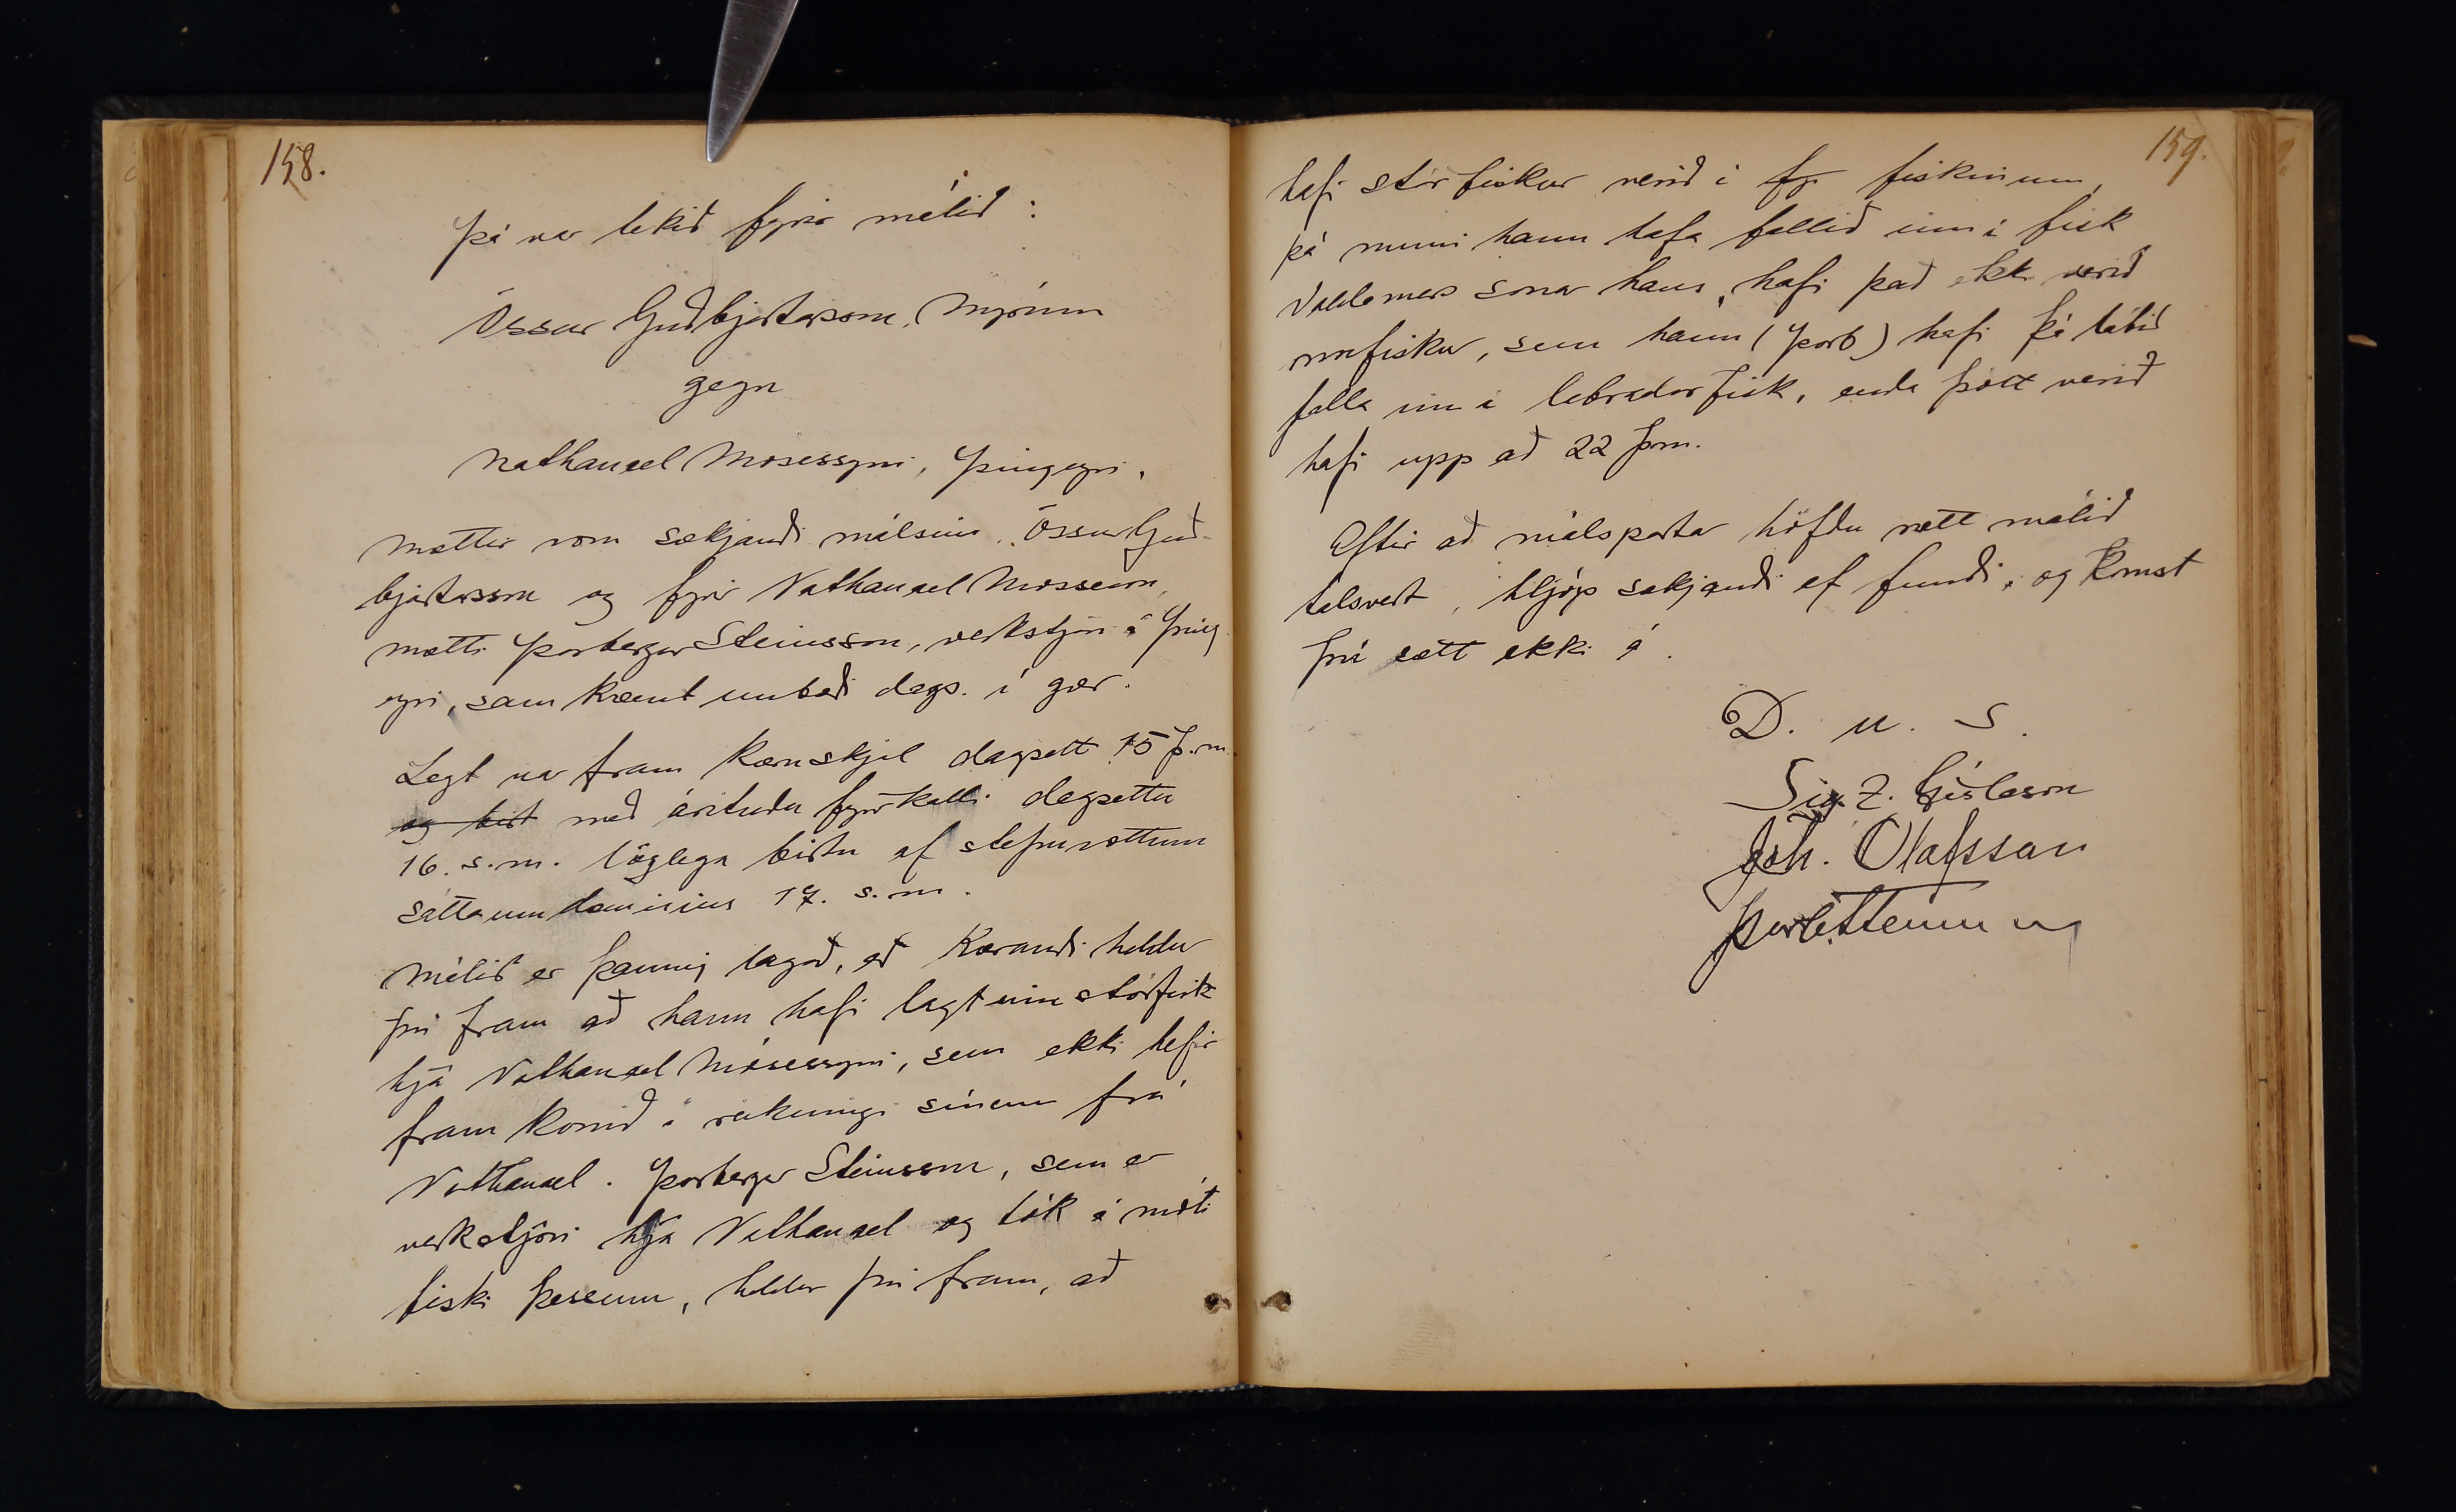 158.
Þá var tekið fyrir málið:
Össur Guðbjartsson, Mýrum
gegn
Nathanael Mósessyni, Þingeyri.
Mættir voru sækjandi málsins, Össur Guð-
bjartsson og fyrir Nathanael Mósesson,
mætti Þorbergur Steinsson, verkstjóri á Þing
eyri, samkvæmt umboði dags. í gær.
Legt var fram kæruskjal dagsett 15 þ.m.
og birt með árituðu fyrirkalli dagsettu
16. s.m. löglega birtu af stefnuvottum
sáttaumdæmisins 17. s.m.
Málið er þannig lagað, að kærandi heldur
því fram að hann hafi lagt inn stórfisk
hjá Nathanael Mósessyni, sem ekki hefir
fram komið í reikningi sínum frá
Nathanael. Þorbergur Steinsson, sem er
verkstjóri hjá Nathanael og tók á móti
fiski þessum, heldur því fram, að
159.
hafi stórfiskur verið í fyr fiskinum,
þá muni hann hafa fallið inn í fisk
Valdemars sonar hans, hafi það ekki verið
fiskur, sem hann (Þorb) hafi þá látið
falla inn í labradorfisk, enda þótt verið
hafi upp að 22 þm.
Eftir að málspartar höfðu rætt málið
talsvert, hljóp sækjandi af fundi, og komst
því sætt ekki á.
D. u. S.
Sig. Z. Gíslason
Joh. Olafsson
Þorb. Steinsson